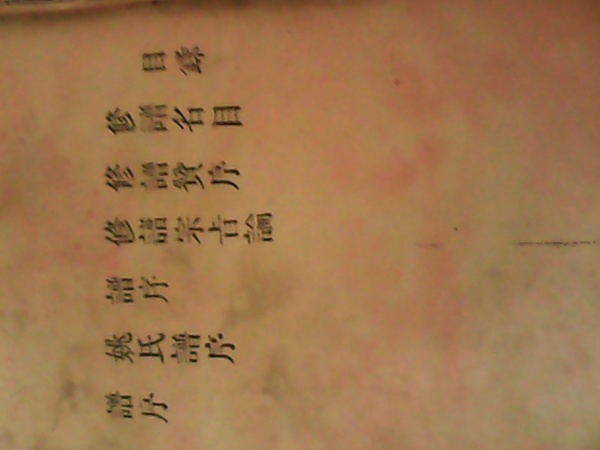 目錄
修譜名目
修譜贊序
修譜宗旨論
譜序
姚氏譜序
譜序